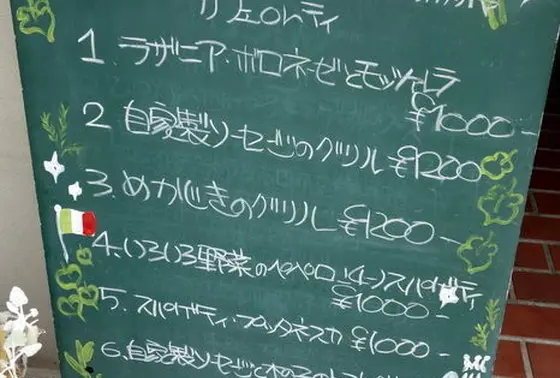 1. ラザニア・ボロネーゼとモッツァレラ
¥1000-
2 自家製ソーセージのグリル ¥1200
3. めかじきのグリル ¥1200-
4. いろいろ野菜のペペロンチーノスパゲティ
¥1000-
5. スパゲティ・プッタネスカ ¥1000-
6. 自家製ソーセージと木の子の